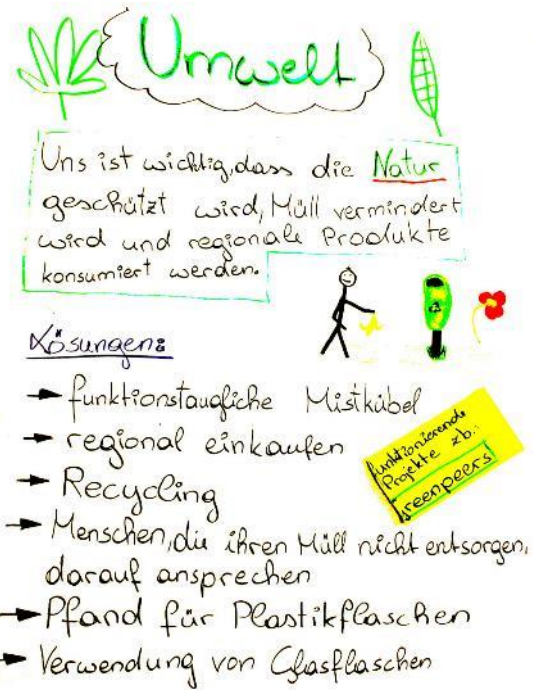 Umwelt
Uns ist wichtig, dass die Natur
geschützt wird, Müll vermindert
wird und regionale Produkte
konsumiert werden.
Lösungen:
→ funktionstaugliche Mistkübel
→ regional einkaufen
→ Recycling
→ Menschen, die ihren Müll nicht entsorgen,
darauf ansprechen
→ Pfand für Plastikflaschen
→ Verwendung von Glasflaschen
funktionierende
Projekte zb.:
greenpeers